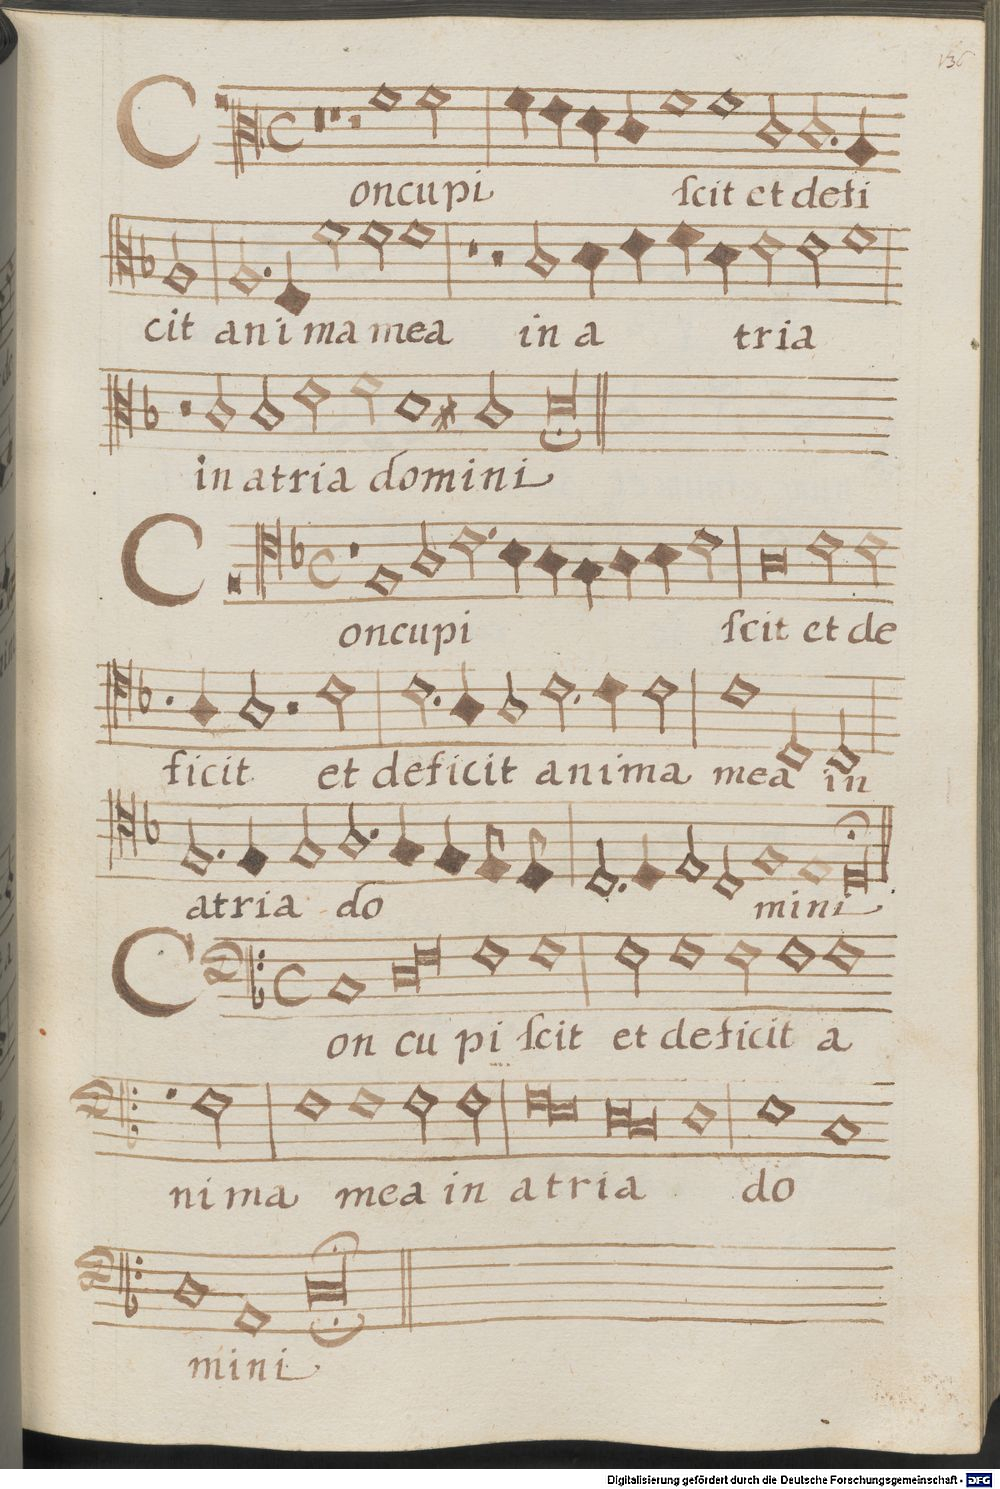 136
Concupi scit et defi
cit anima mea in a tria
in atria domini
Concupi scit et de
ficit et deficit anima mea in
atria do mini
Con cu pi scit et deficit a
nima mea in atria do
mini
Digitalisierung gefördert durch die Deutsche Forschungsgemeinschaft - DFG